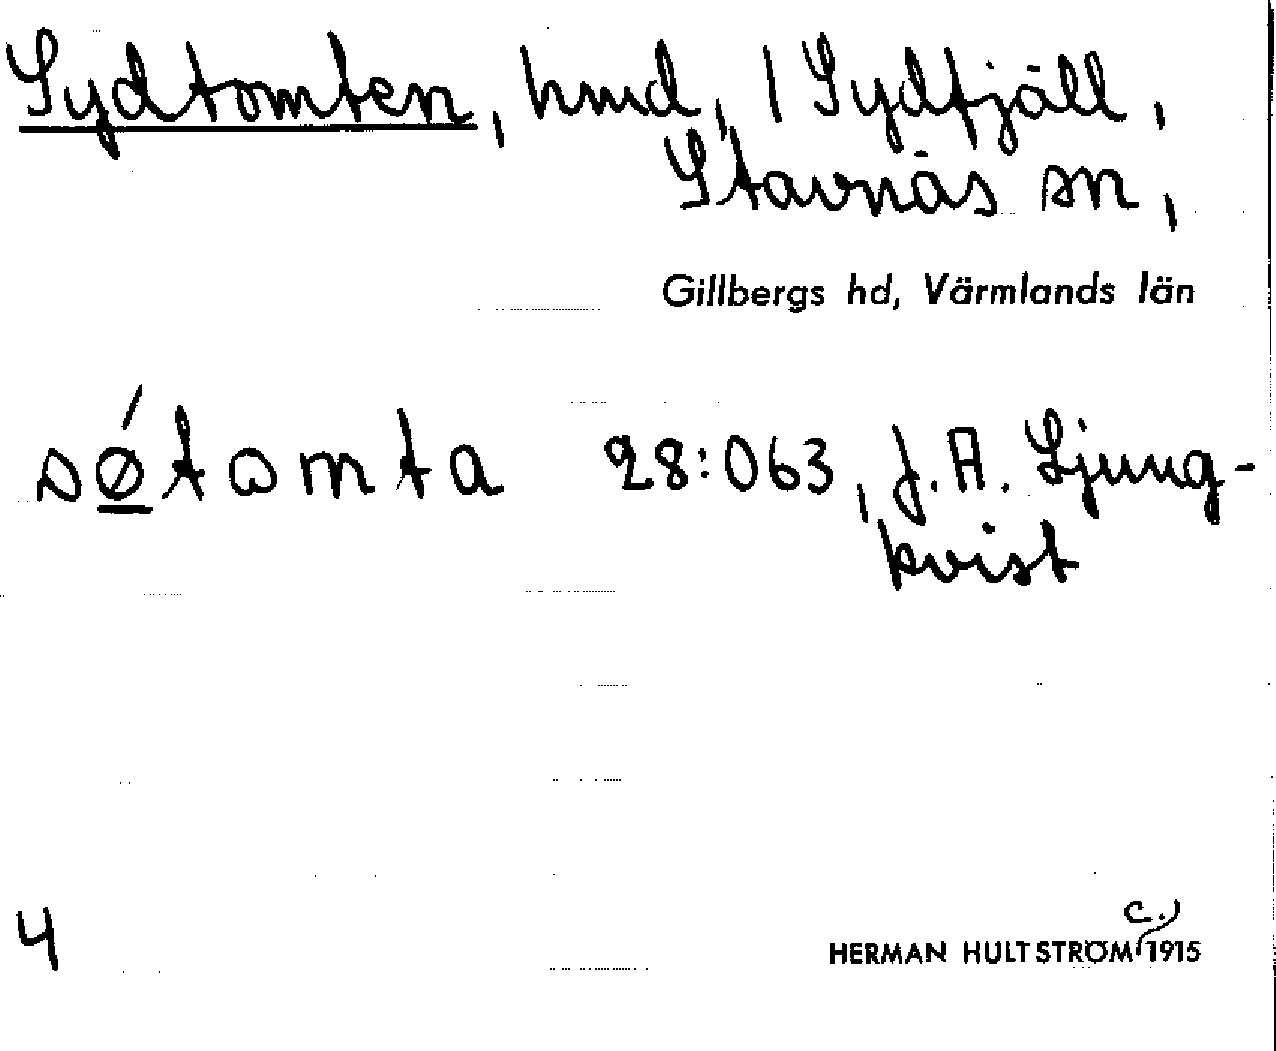 Sydtomten, hmd, 1 Sydfjäll,
Stavnäs sn,
Gillbergs hd, Värmlands län
sǿtomta 28:063, J. A. Ljung-
kvist
4
c.
HERMAN HULTSTRÖM 1915